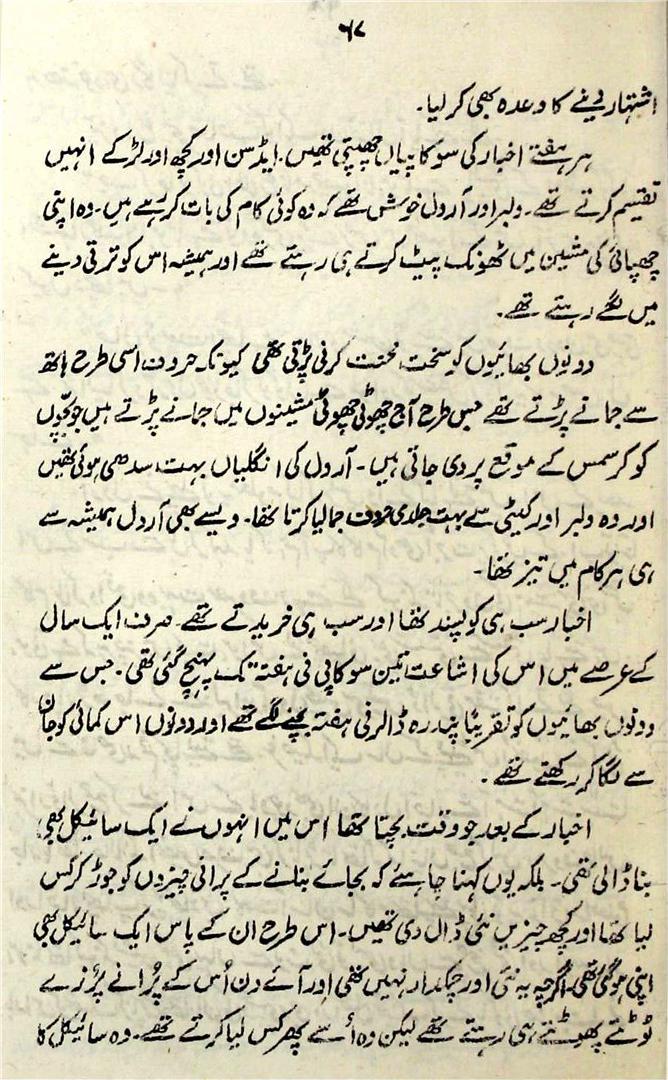 ۶۷
اشتہار دینے کا وعدہ بھی کر لیا۔
ہر ہفتے اخبار کی سو کاپیاں چھپتی تھیں۔ ایڈسن اور کچھ اور لڑکے انہیں
تقسیم کرتے تھے۔ ولبر اور آرول خوش تھے کہ وہ کوئی کام کی بات کر رہے ہیں۔ وہ اپنی
چھپائی کی مشین میں ٹھونک پیٹ کرتے ہی رہتے تھے اور ہمیشہ اس کو ترقی دینے
میں لگے رہتے تھے۔
دونوں بھائیوں کو سخت محنت کرنی پڑتی تھی کیونکہ حروف اسی طرح ہاتھ
سے جمانے پڑتے تھے جس طرح آج چھوٹی چھوٹی مشینوں میں جمانے پڑتے ہیں جو بچوں
کو کرسمس کے موقع پر دی جاتی ہیں۔ آرول کی انگلیاں بہت سدھی ہوئی تھیں
اور وہ ولبر اور کیٹی سے بہت جلدی حروف جما لیا کرتا تھا۔ ویسے بھی آرول ہمیشہ سے
ہی ہر کام میں تیز تھا۔
اخبار سب ہی کو پسند تھا اور سب ہی خریدتے تھے۔ صرف ایک سال
کے عرصے میں اس کی اشاعت تین سو کاپی فی ہفتہ تک پہنچ گئی تھی۔ جس سے
دونوں بھائیوں کو تقریباً پندرہ ڈالر فی ہفتہ بچنے لگے تھے اور دونوں اس کمائی کو جان
سے لگا کر رکھتے تھے۔
اخبار کے بعد جو وقت بچتا تھا اس میں انہوں نے ایک سائیکل بھی
بنا ڈالی تھی۔ بلکہ یوں کہنا چاہئے کہ بجائے بنانے کے پرانی چیزوں کو جوڑ کر کس
لیا تھا اور کچھ چیزیں نئی ڈال دی تھیں۔ اس طرح ان کے پاس ایک سائیکل بھی
اپنی ہو گئی تھی۔ اگرچہ یہ نئی اور چمکدار نہیں تھی اور آئے دن اُس کے پُرانے پُرزے
ٹوٹتے پھوٹتے ہی رہتے تھے لیکن وہ اُسے پھر کس لیا کرتے تھے۔ وہ سائیکل کا